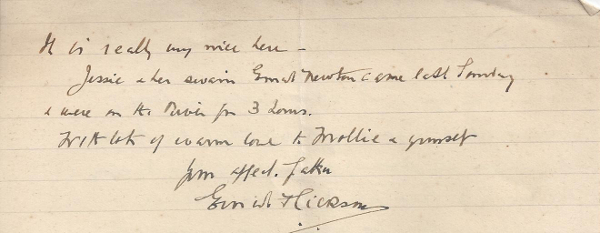 It is really very nice here –
Jessie & her swain Newton came last Sunday
& were on the River for 3 hours.
With lots of warm love to Mollie & yourself
your affect. father
Hickson